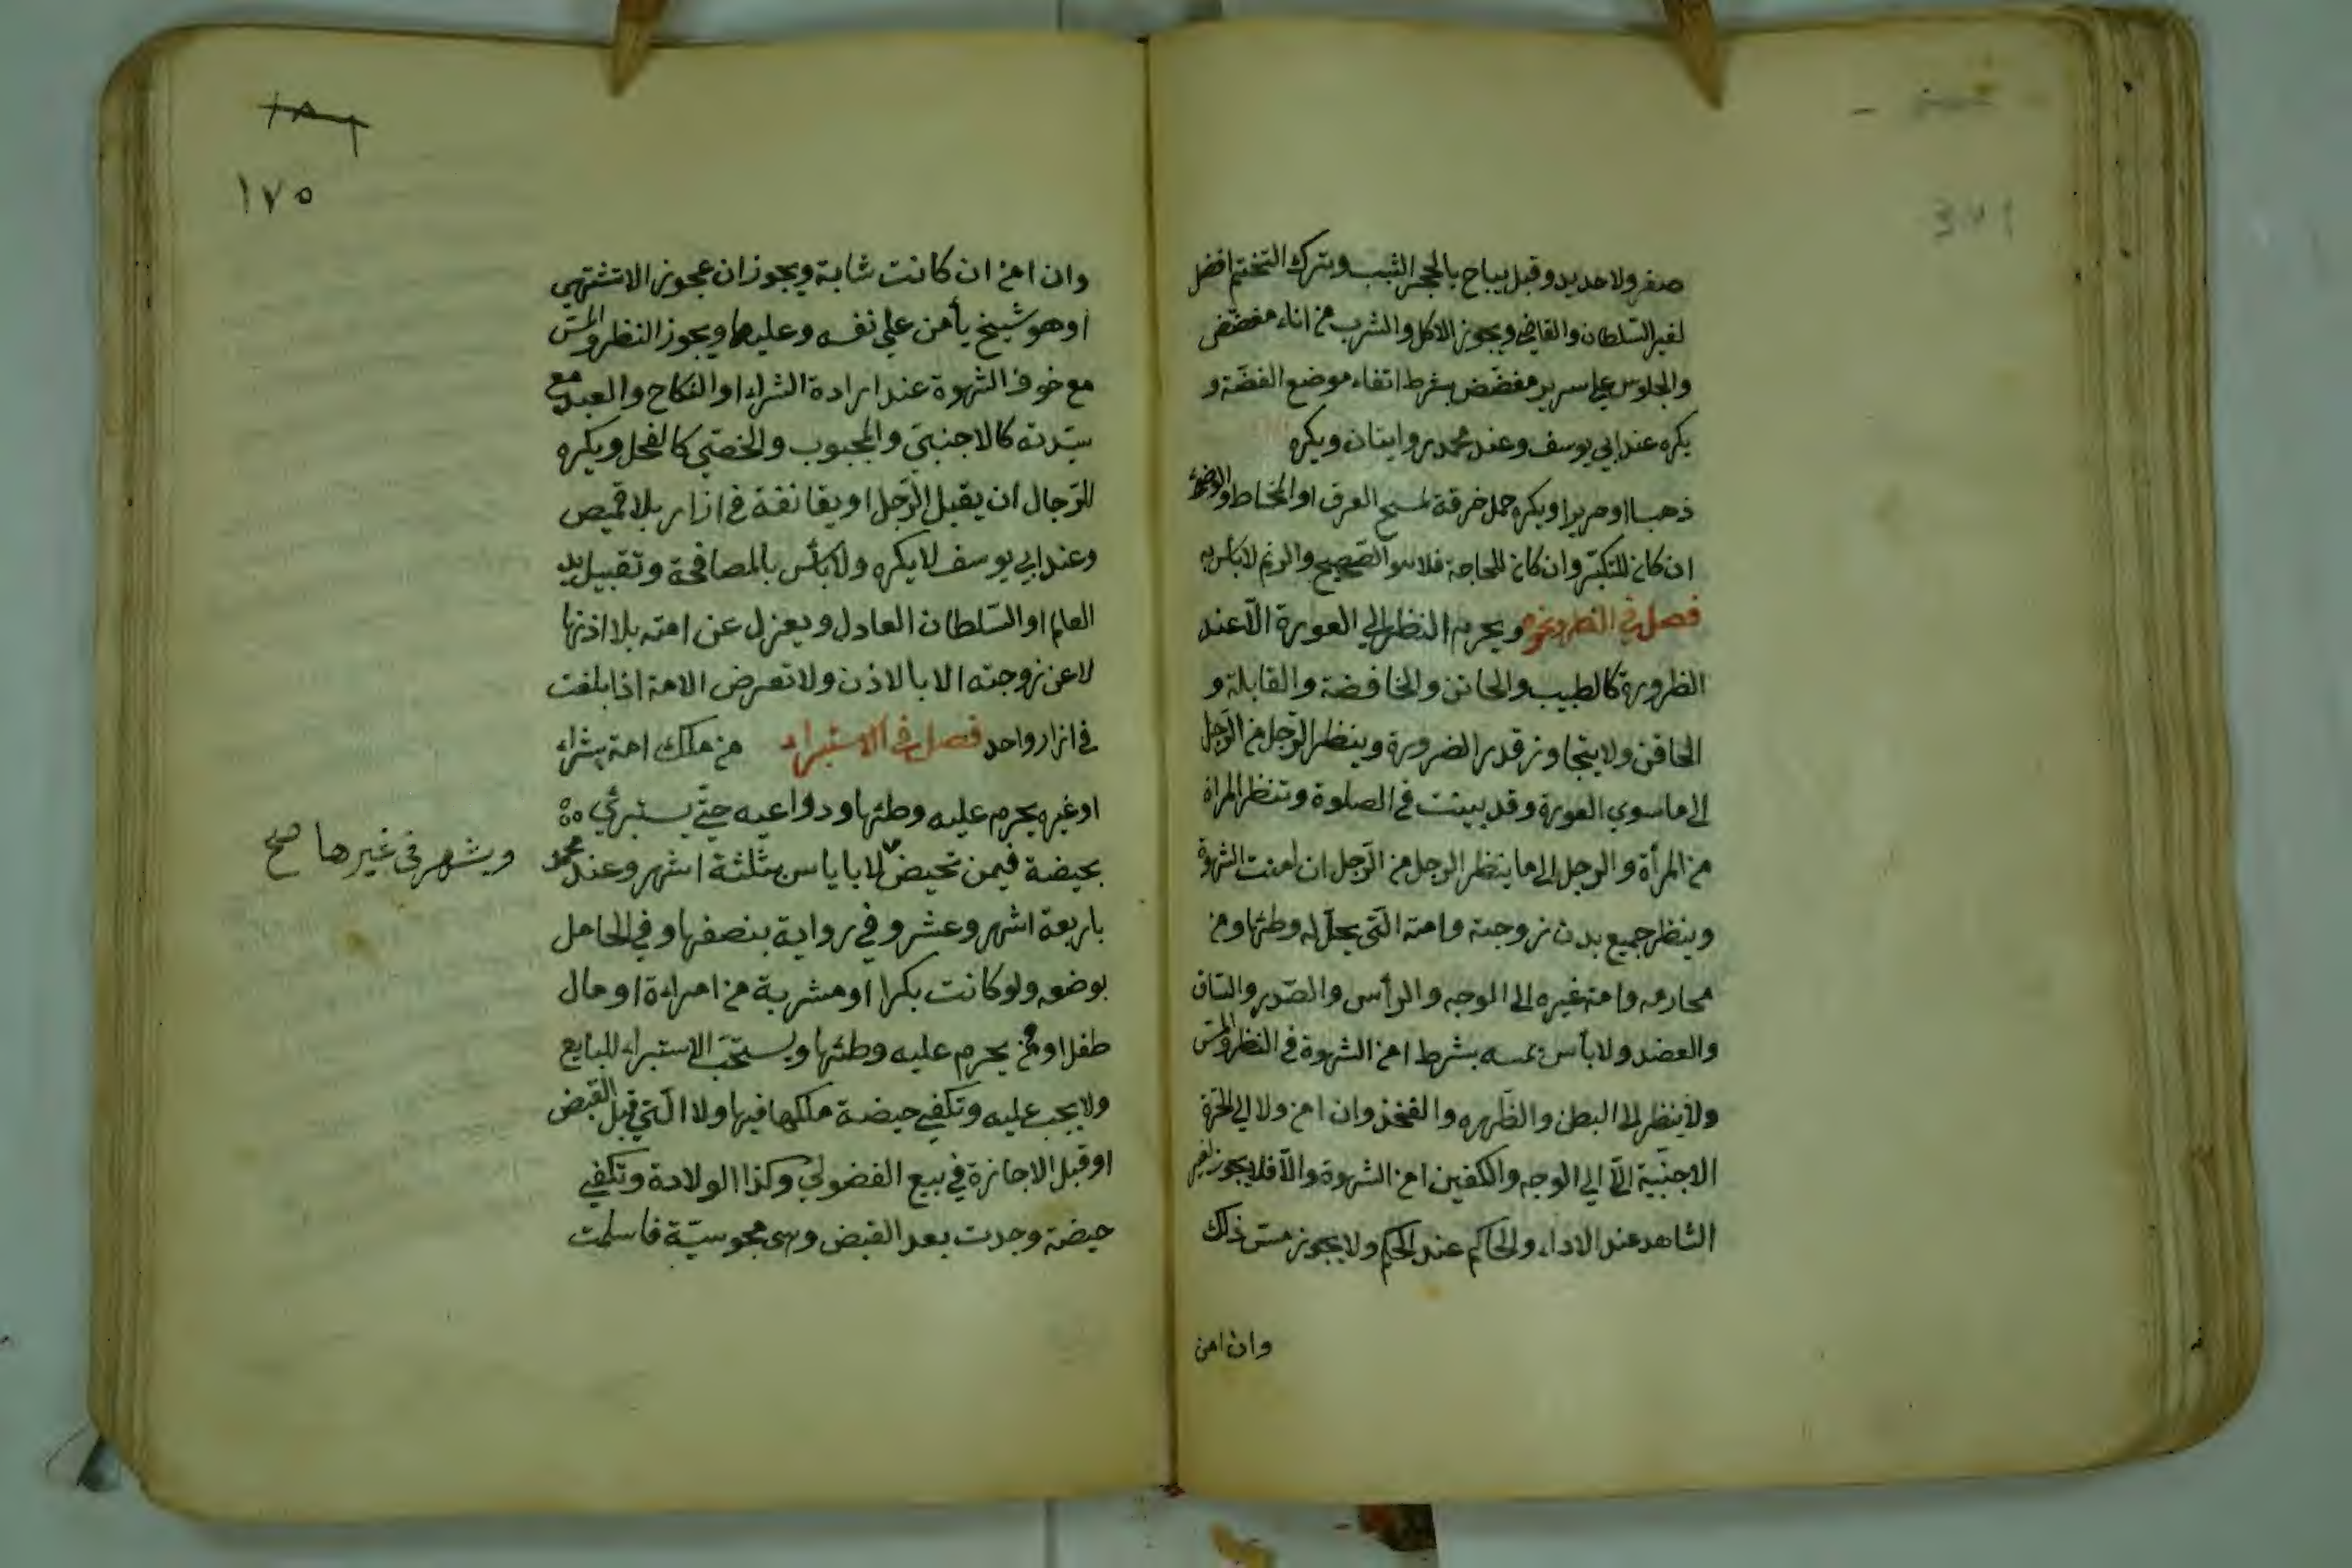 صفر ولا حديد وقيل يباح بالحجر اليشب وبترك التختم افضل
لغير السّلطان والقاضى ويجوز الاكل والشرب من اناء مفضّض
والجلوس على سرير مفضّض بشرط اتقاء موضع الفضّة و
يكره عند ابي يوسف وعند محمد روايتان ويكره
ذهبا او حريرا ويكره حمل خرقة لمسح العرق او المخاط والوضوء
ان كان للتكبّر وان كان للحاجة فلا هو الصّحيح والرتم لا بأس به
فصل في النظر ونحوه ويحرم النظر الي العورة الّا عند
الظرورة كالطبيب والخاتن والخافضة والقابلة و
الحاقن ولا يتجاوز قدر الضرورة وينظر الرّجل من الرّجل
الى ما سوي العورة وقد بينت في الصلوة وتنظر المرأة
من المرأة والرجل الى ما ينظر الرجل من الرّجل ان امنت الشهوة
وينظر جميع بدن زوجته وامته الّتى يحلّ له وطئها ومن
محارمه وامة غيره الى الوجه والرأس والصّدر والساق
والعضد ولا بأس بمسه بشرط امن الشهوة في النظر والمسّ
ولا ينظر الى البطن والظّهره والفخذ وان امن ولا الي الحرّة
الاجنبّية الّا الي الوجه والكفين امن الشهوة والّا فلا يجوز لغير
الشاهد عند الاداء والحاكم عند الحكم ولا يجوز مسّ ذلك
وان امن
١٨٦
١٧٥
وان امن ان كانت شابة ويجوز ان عجوز الا تشتهي
او هو شيخ يأمن علي نفسه وعليها ويجوز النظر والمسّ
مع خوف الشهوة عند ارادة الشراء او النكاح والعبد مع
سيّدته كالاجنبيّ والمجبوب والخصّي كالفحل ويكره
للرّجال ان يقبل الرّجل او يقانقة في ازار بلا قميص
وعند ابي يوسف لا يكره ولا بأس بالمصافحة وتقبيل يد
العالم او السّلطان العادل ويعزل عن امته بلا اذنها
لا عن زوجته الا بالاذن ولا تعرض الامة اذا بلغت
في ازار واحد فصل في الاستبراء من ملك امة بشراء
او غيره يحرم عليه وطئها ودواعيه حتّي يستبرئي
بحيضة فيمن تحيض لا باياس بثلثة اشهر وعند محمد
ويشهر فى غيرها صح
باربعة اشهر وعشر وفي رواية بنصفها وفي الحامل
بوضعه ولو كانت بكرا او مشرية من امراءة او مال
طفل او ممن يحرم عليه وطئها ويستحّب الاستبراء للبايع
ولا يجب عليه وتكفي حيضة ملكها فيها ولا الّتي قبل القبض
او قبل الاجازة في بيع الفضولي وكذا الولادة وتكفي
حيضة وجدت بعد القبض وهى مجوسيّة فاسلمت